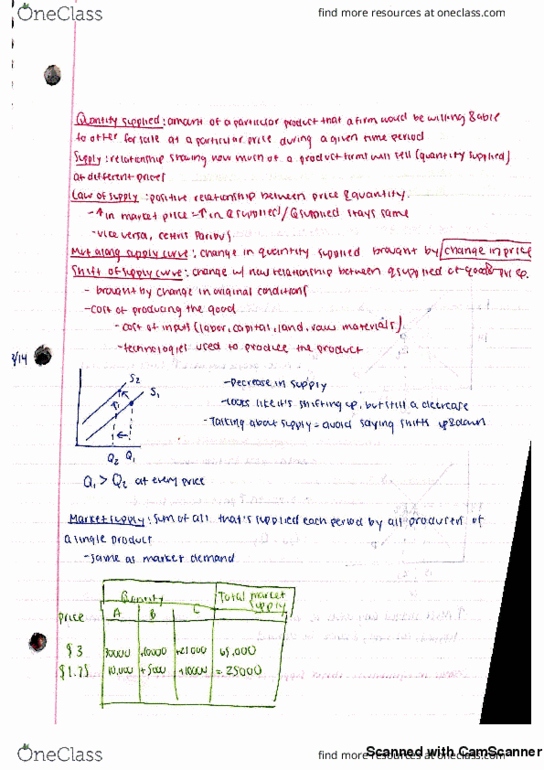 OneClass
find more resources at oneclass.com
Quantity supplied: amount of a particular product that a firm would be willing & able
to offer for sale at a particular price during a given time period
Supply: relationship showing how much of a product firms will sell (quantity supplied)
at different prices
Law of supply: positive relationship between price & quantity.
-↑ in market price = ↑ in Q supplied / Q supplied stays same
-vice versa, ceteris Paribus.
Mvt along supply curve: change in quantity supplied brought by change in price
Shift of supply curve: change w/ new relationship between q supplied of good
- brought by change in original conditions
-cost of producing the good
-cost of inputs (labor, capital, land, raw materials)
-technologies used to produce the product
/14
S2
S1
-Decrease in supply
-looks like it's shifting up, but still a decrease
-Talking about supply = avoid saying shifts up & down
Q2 Q1
Q1 > Q2 at every price
Market supply: sum of all that's supplied each period by all producers of
a single product
-same as market demand
Quantity
Total market supply
price A B C
$3 30000 +21000 65,000
$1.75 10,000 +5000 +10000 = 25000
Scanned with CamScanner
OneClass
find more resources at oneclass.com